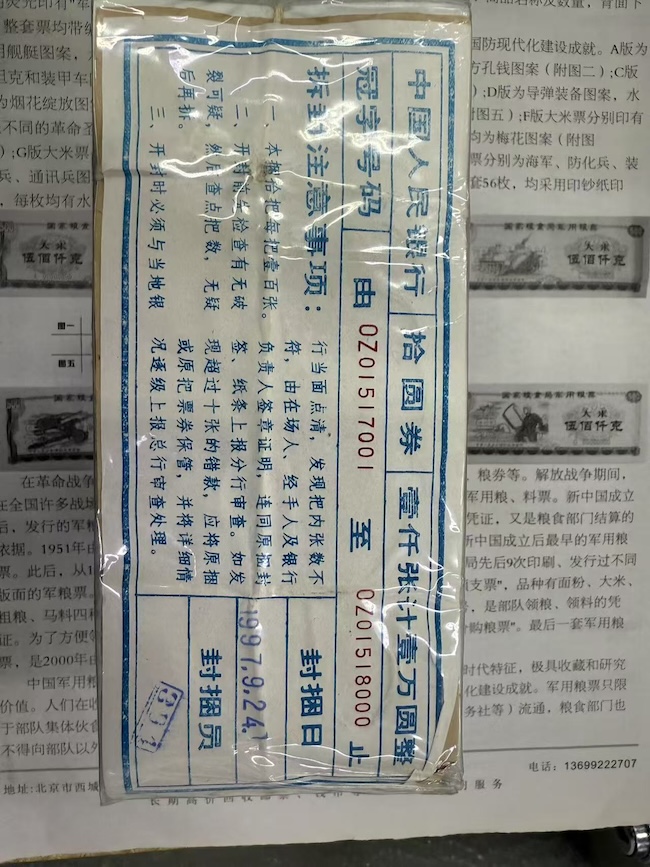 中国人民银行 拾圆券 壹仟张计壹万圆整
冠字号码 由 0Z01517001 至 0Z01518000 止
拆封注意事项：
一、本捆拾把每把壹百张。
二、开封前先检查有无破
裂可疑，然后查点把数，无疑
后再拆。
三、开封时必须与当地银
行当面点清，发现把内张数不
符，由在场人、经手人及银行
负责人签章证明，连同原捆封
签、纸条上报分行审查。如发
现超过十张的错款，应将原捆
或原把票券保管，并将详细情
况逐级上报总行审查处理。
封捆日
1997.9.24.
封捆员
整套票均带
用舰艇图案，
坦克和装甲车
为烟花绽放图
不同的革命圣
);G版大米票
兵、通讯兵图
，每枚均有水
图一
图五
在革命战争
在全国许多战
后，发行的军粮
依据。1951年由
票。此后，从1
版面的军粮票。
粗粮、马料四种
证。为了方便
票，是2000年由
中国军用粮
价值。人们在收
于部队集体伙食
不得向部队以外
地址:北京市西城
国防现代化建设成就。A版为
方孔钱图案（附图二）;C版
);D版为导弹装备图案，水
附图五）;F版大米票分别印有
均为梅花图案（附图
票分别为海军、防化兵、装
套56枚，均采用印钞纸印
国家粮食局军用粮票
大米
伍佰仟克
国家粮食局军用粮票
大米
伍佰仟克
、粮券等。解放战争期间，
军用粮、料票。新中国成立
凭证，又是粮食部门结算的
新中国成立后最早的军用粮
局先后9次印刷、发行过不同
支票”，品种有面粉、大米、
，是部队领粮、领料的凭
购粮票”。最后一套军用粮
时代特征，极具收藏和研究
化建设成就。军用粮票只限
务社等）流通，粮食部门也
电话：13699222707
的服务